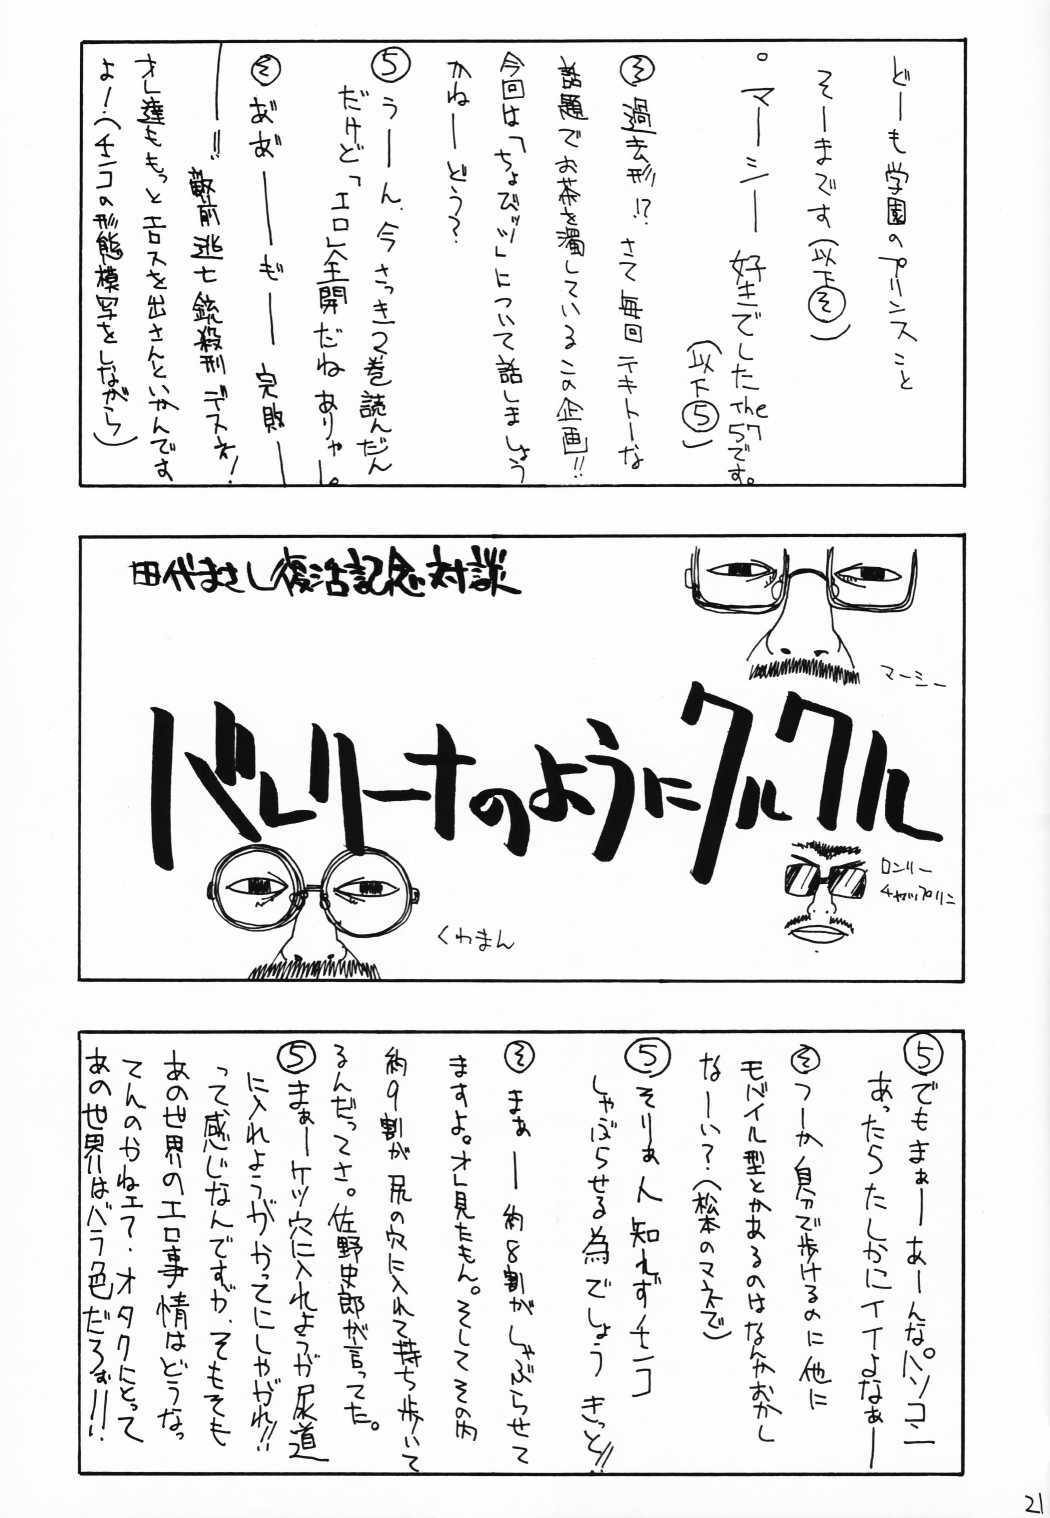 どーも学園のプリンスこと
そーまです(以下そ)
。マーシー好きでしたThe57です。
(以下5)
そ 過去形!?さて毎回テキトーな
話題でお茶を濁しているこの企画!!
今回は「ちょびッツ」について話しましょう
かねーどう?
5 うーん、今さっき2巻読んだん
だけど「エロ」全開だねありゃー。
そ あ゛あ゛ーーーぎーー完敗ーー
ーー!!敵前逃亡銃殺刑デスネ!
オレ達ももっとエロスを出さんといかんです
よ!(チンコの形態模写をしながら)
田代まさし復活記念対談
マーシー
バレリーナのようにクルクル
ロンリー
チャップリン
くわまん
5 でもまぁーあーんなパソコン
あったらたしかにイイよなぁー
そ つーか自分で歩けるのに他に
モバイル型とかあるのはなんかおかし
なーい?(松本のマネで)
5 そりゃぁ人知れずチンコ
しゃぶらせる為でしょうきっと!!
そ まぁー約8割がしゃぶらせて
ますよ。オレ見たもん。そしてその内
約9割が尻の穴に入れて持ち歩いて
るんだってさ。佐野史郎が言ってた。
5 まぁーケツ穴に入れようが尿道
に入れようがかってにしやがれ!!
って感じなんですが、そもそも
あの世界のエロ事情はどうなっ
てんのかねェ?・オタクにとって
あの世界はバラ色だろぉ!!!
21